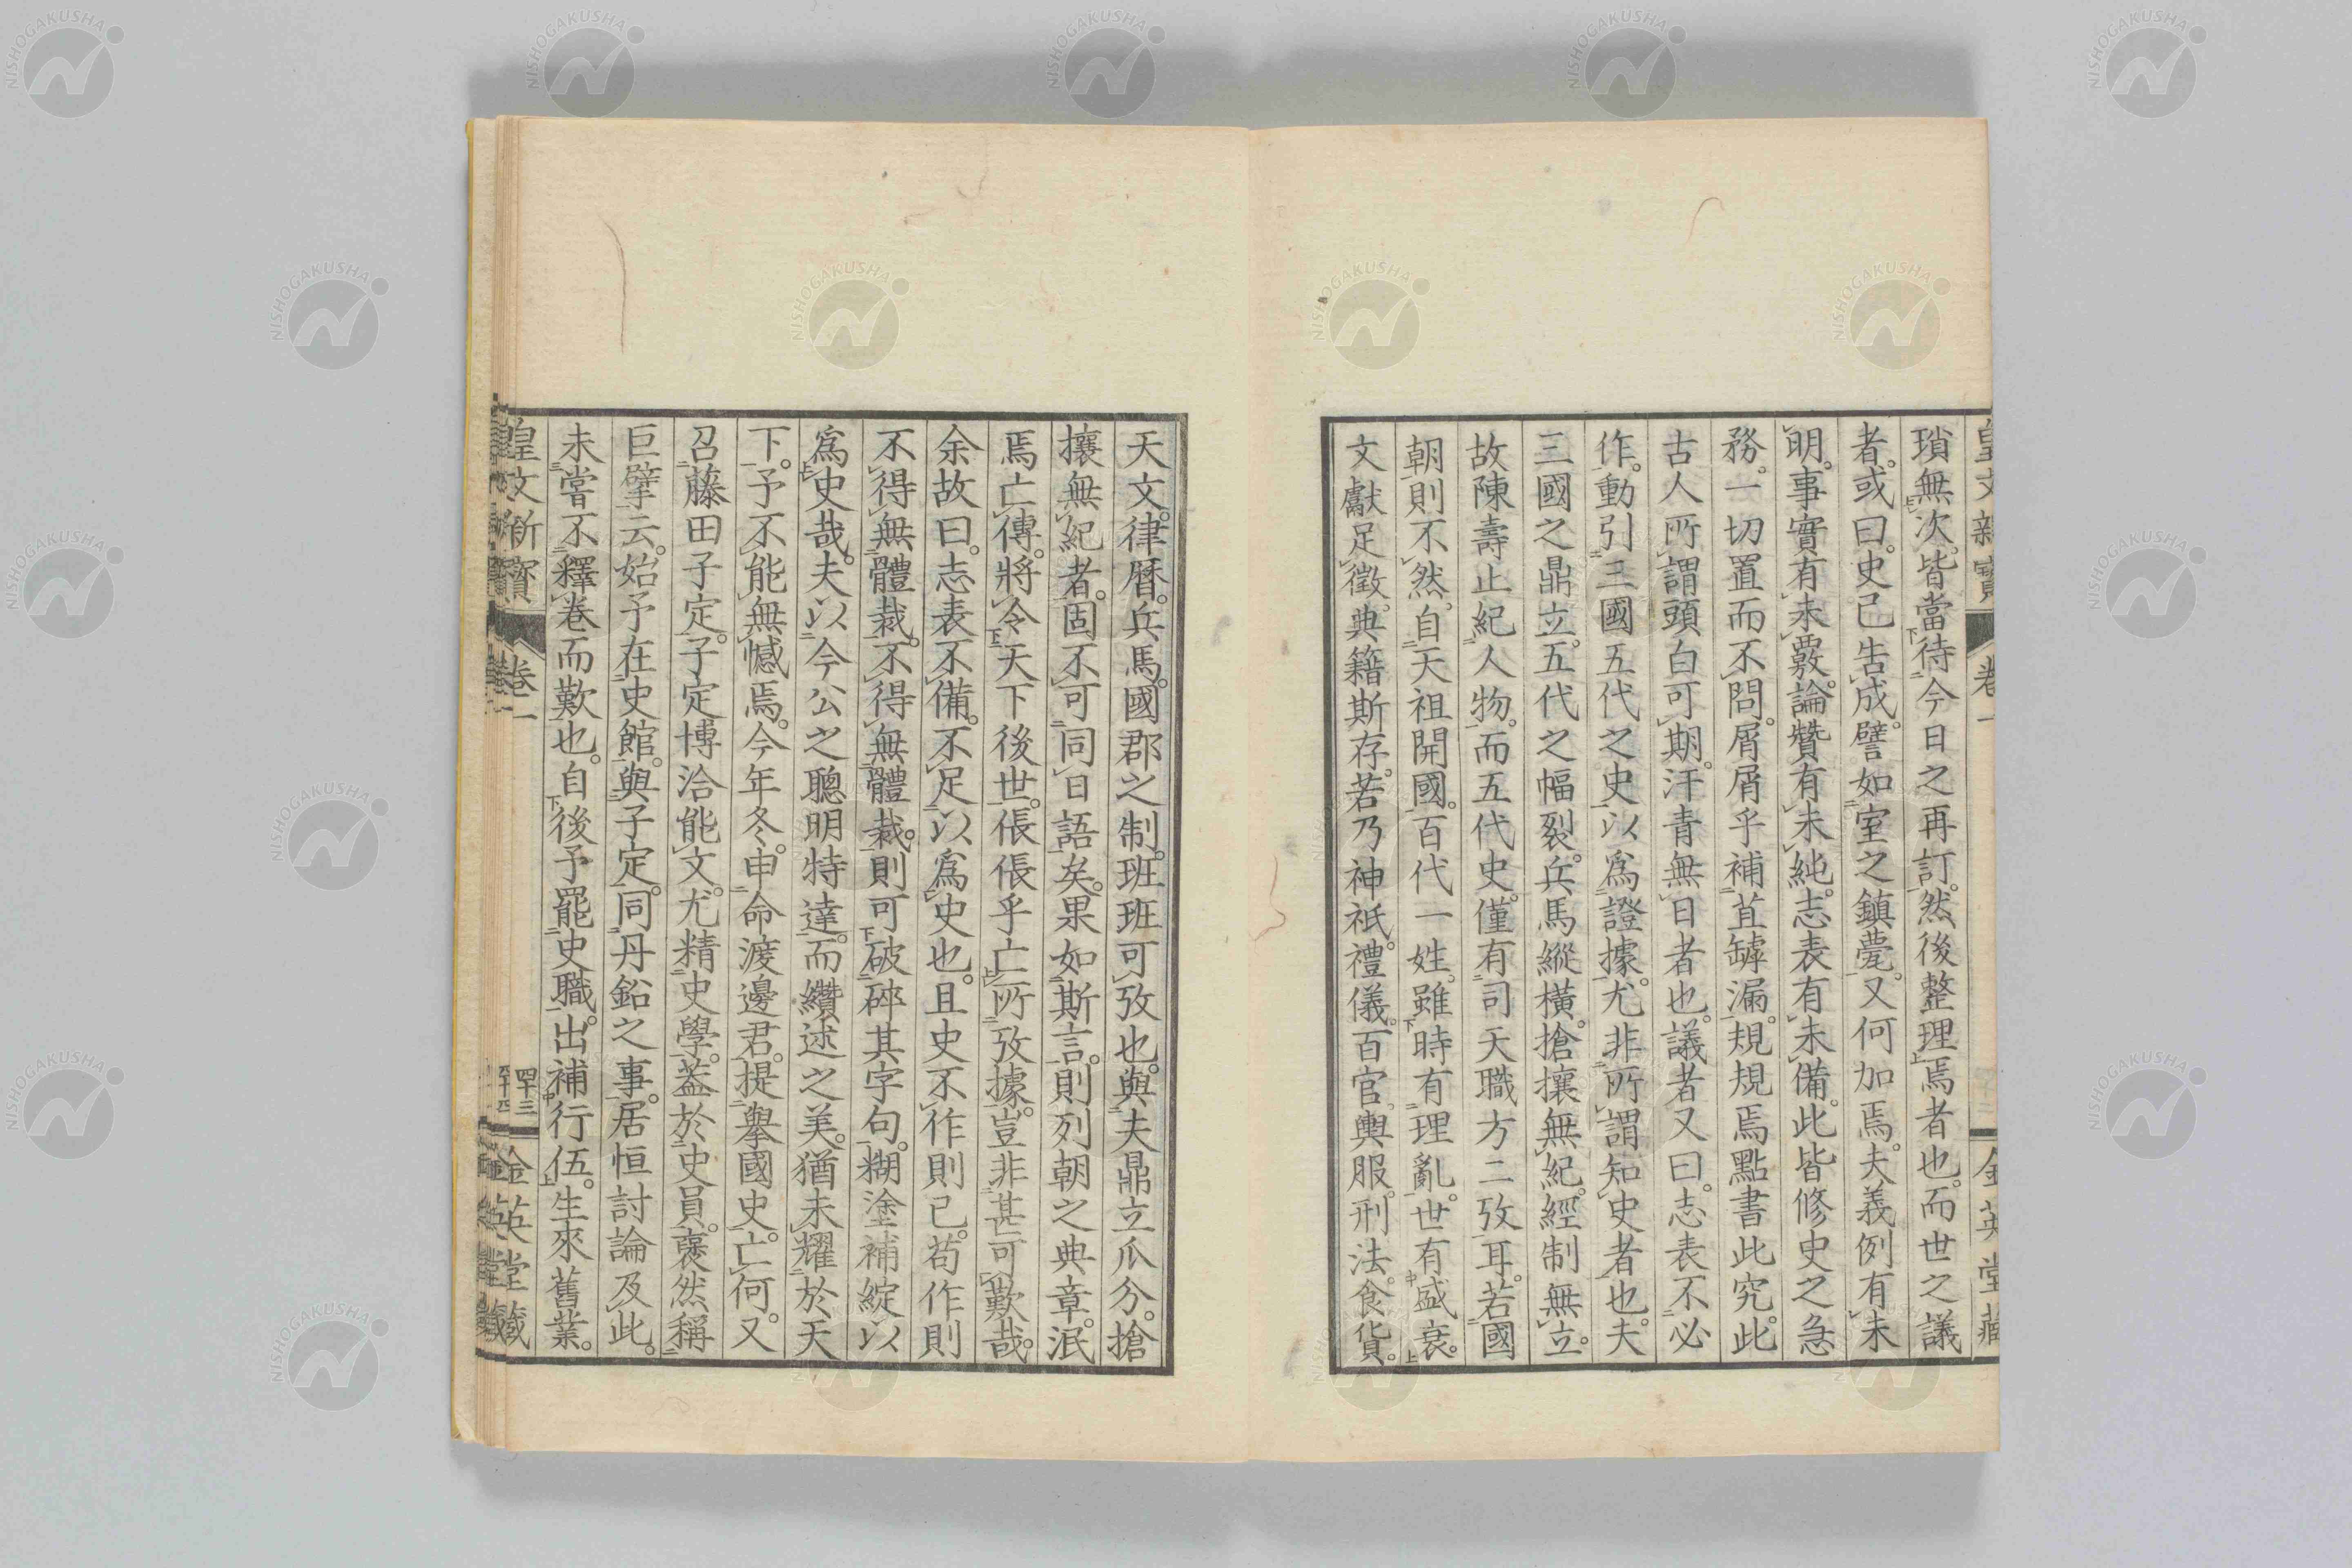 瑣無次。皆當待今日之再訂。然後整理焉者也。而世之議
者。或曰。史已告成。譬如室之鎮甍。又何加焉。夫義例有未
明。事實有未覈。論贊有未純。志表有未備。此皆修史之急
務。一切置而不問。屑屑乎補苴罅漏。規規焉點書此究。此
古人所謂頭白可期。汗青無日者也。議者又曰。志表不必
作。動引三國五代之史。以爲證據。尤非所謂知史者也。夫
三國之鼎立。五代之幅裂。兵馬縱橫。搶攘無紀。經制無立。
故陳壽止紀人物。而五代史。僅有司天職方二攷耳。若國
朝則不然。自天祖開國。百代一姓。雖時有理亂。世有盛衰。
文獻足徵。典籍斯存。若乃神祇。禮儀。百官。輿服。刑法。食貨。
天文。律曆。兵馬。國郡之制。班班可攷也。與夫鼎立瓜分。搶
攘無紀者。固不可同日語矣。果如斯言。則列朝之典章。泯
焉亡傳。將令天下後世。倀倀乎亡所攷據。豈非甚可歎哉。
余故曰。志表不備。不足以爲史也。且史不作則已。苟作則
不得無體裁。不得無體裁。則可破碎其字句。糊塗補綻以
爲史哉。夫以今公之聰明特達。而纘述之美。猶未耀於天
下。予不能無憾焉。今年冬。申命渡邊君。提擧國史。亡何。又
召藤田子定。子定博洽能文。尤精史學。蓋於史員。裒然稱
巨擘云。始予在史館。與子定。同丹鉛之事。居恒討論及此。
未嘗不釋卷而歎也。自後予罷史職。出補行伍。生來舊業。
皇文新寶
卷一
四十三
金英堂藏
NISHOGAKUSHA